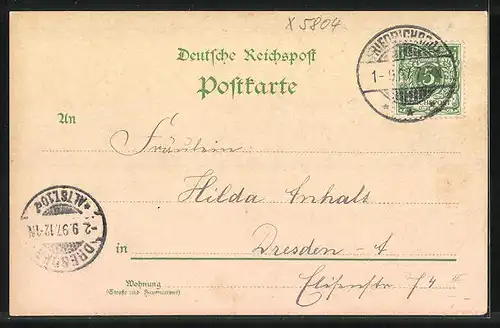 X 5804
Deutsche Reichspost
Postkarte
1-9 97
5
An
Fräulein
Hilda Anhalt
in Dresden - A
Elisenstr 74 II
Wohnung
(Straße und Hausnummer)
DRESDEN
ALTST. 10 d
-2. 9. 97. 12-1 N.